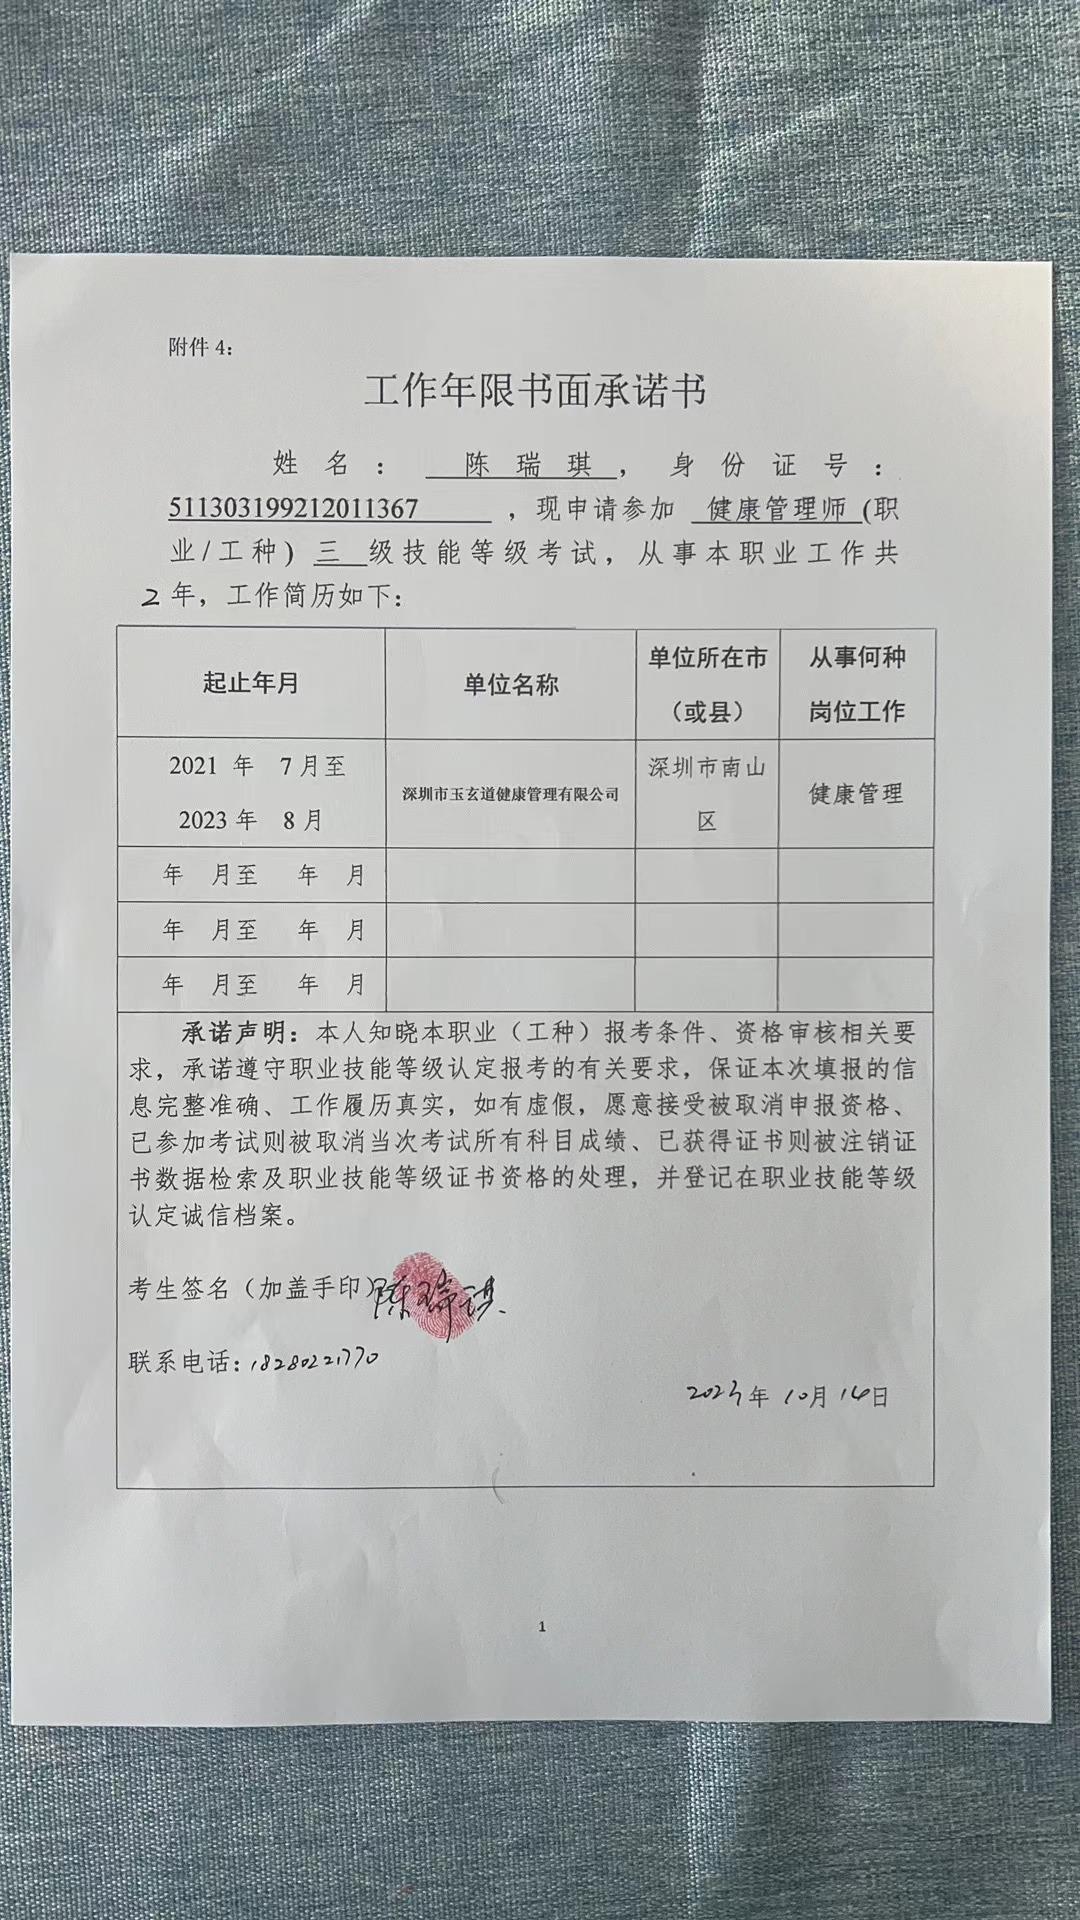 附件 4：
工作年限书面承诺书
姓名：陈瑞琪，身份证号：
511303199212011367，现申请参加 健康管理师 (职
业/工种) 三 级技能等级考试，从事本职业工作共
2 年，工作简历如下：
起止年月 单位名称 单位所在市（或县） 从事何种岗位工作
2021 年 7 月至 2023 年 8 月 深圳市玉玄道健康管理有限公司 深圳市南山区 健康管理
年 月至 年 月
年 月至 年 月
年 月至 年 月
承诺声明：本人知晓本职业（工种）报考条件、资格审核相关要
求，承诺遵守职业技能等级认定报考的有关要求，保证本次填报的信
息完整准确、工作履历真实，如有虚假，愿意接受被取消申报资格、
已参加考试则被取消当次考试所有科目成绩、已获得证书则被注销证
书数据检索及职业技能等级证书资格的处理，并登记在职业技能等级
认定诚信档案。
考生签名（加盖手印）陈瑞琪
联系电话：18280221770
2023年 10月 14日
1